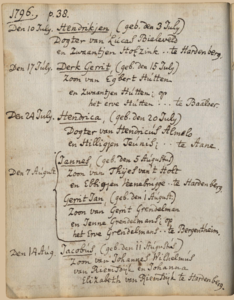 1796. p. 38.
Den 10 July. Hendrikjen (geb. den 3 July)
Dogter van Lucas Bieleveld
en Zwaantjen Hofzink .. te Hardenberg
Den 17 July. Derk Gerrit (geb. den 15 July)
Zoon van Egbert Hutten
en Zwaantjen Hutten; op
het erve Hutten ... te Baalder
Den 24 July. Hendrica (geb. den 20 July)
Dogter van Hendricus
en Hilligjen Teunis; .. te Aane
Den 7 August Jannes (geb. den 5 Augustus)
Zoon van Thijes van 't Holt
en te Hardenberg
Gerrit Jan (geb. den 1 August)
Zoon van Gerrit Grendelman
en Jenne Grendelman; op
het erve Grendelman .. te Bergentheim
Den 14 Aug. Jacobus (geb. den 11 Augustus)
Zoon van Johannes Wilhelmus
van Riemsdijk en Johanna
Elizabeth van Riemsdijk te Hardenberg.